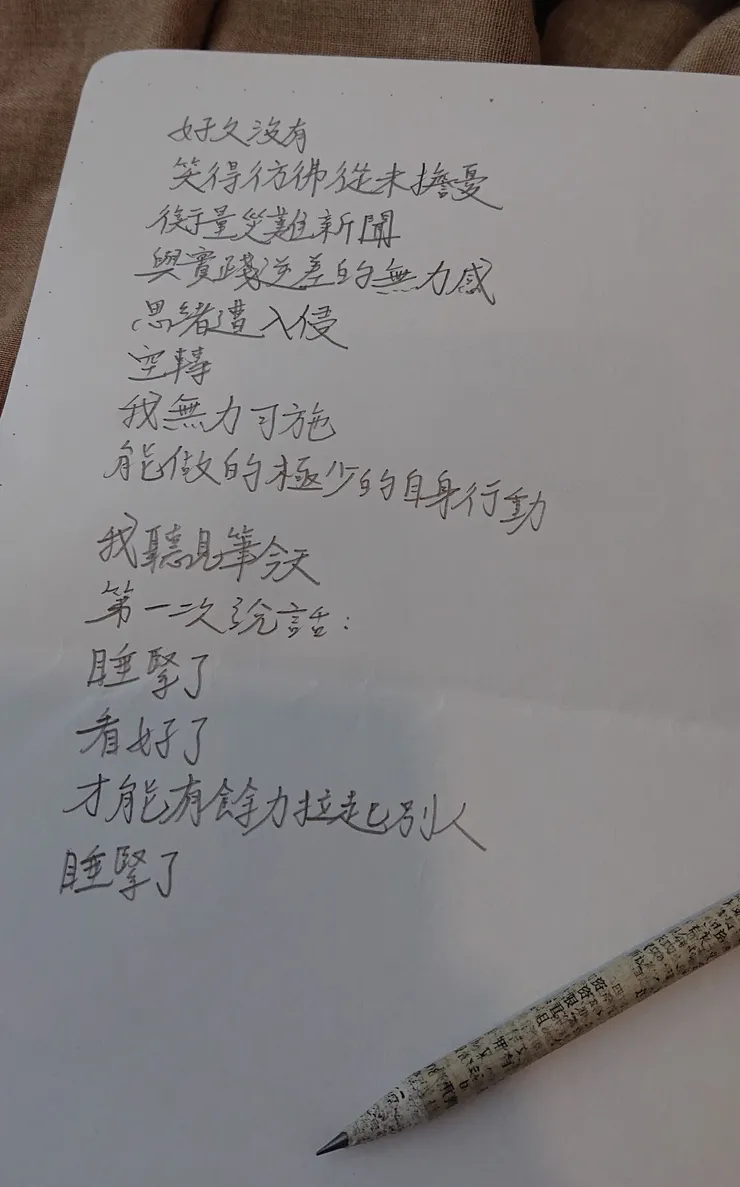 好久沒有
笑得彷彿從未擔憂
衡量災難新聞
與實踐逆差的無力感
思緒遭入侵
空轉
我無力可施
能做的極少的自身行動
我聽見筆今天
第一次說話：
睡緊了
看好了
才能有餘力拉起別人
睡緊了